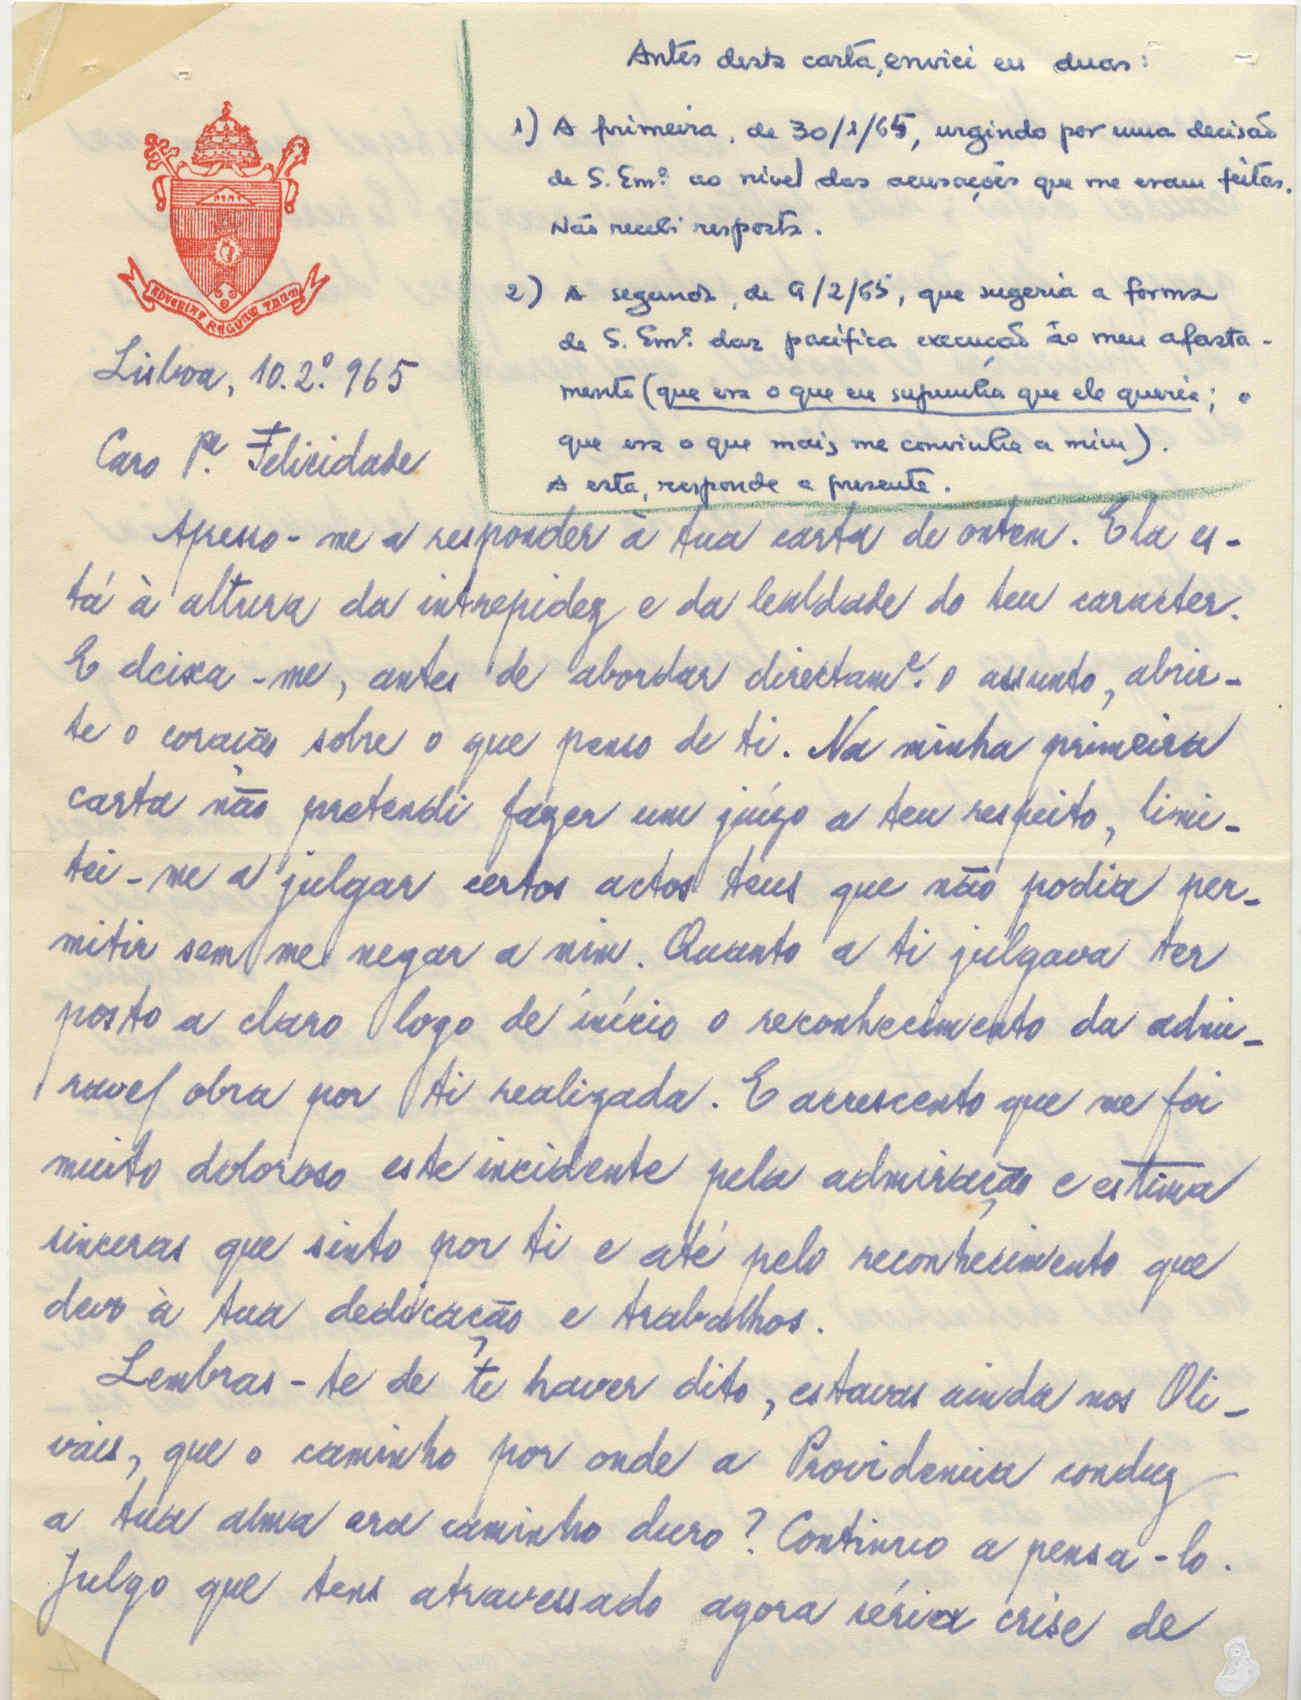 Antes desta carta, enviei eu duas:
1) A primeira, de 30/1/65, urgindo por uma decisão
de S. Emª. ao nível das acusações que me eram feitas.
Não recebi resposta.
2) A segunda, de 9/2/65, que sugeria a forma
de S. Emª. dar pacífica execução ao meu afasta-
mento (que era o que eu supunha que ele queria; e
que era o que mais me convinha a mim).
A esta, responde a presente.
ADVENIAT REGNUM TUUM
Lisboa, 10.2º.965
Caro Pe. Felicidade
Apresso-me a responder à tua carta de ontem. Ela es-
tá à altura da intrepidez e da lealdade do teu caracter.
E deixa-me, antes de abordar directame. o assunto, abrir-
te o coração sobre o que penso de ti. Na minha primeira
carta não pretendi fazer um juízo a teu respeito, limi-
tei-me a julgar certos actos teus que não podia per-
mitir sem me negar a mim. Quanto a ti julgava ter
posto a claro logo de início o reconhecimento da admi-
ravel obra por ti realizada. E acrescento que me foi
muito doloroso este incidente pela admiração e estima
sinceras que sinto por ti e até pelo reconhecimento que
devo à tua dedicação e trabalhos.
Lembras-te de te haver dito, estavas ainda nos Oli-
vais, que o caminho por onde a Providencia conduz
a tua alma era caminho duro? Continuo a pensa-lo.
Julgo que tens atravessado agora séria crise de